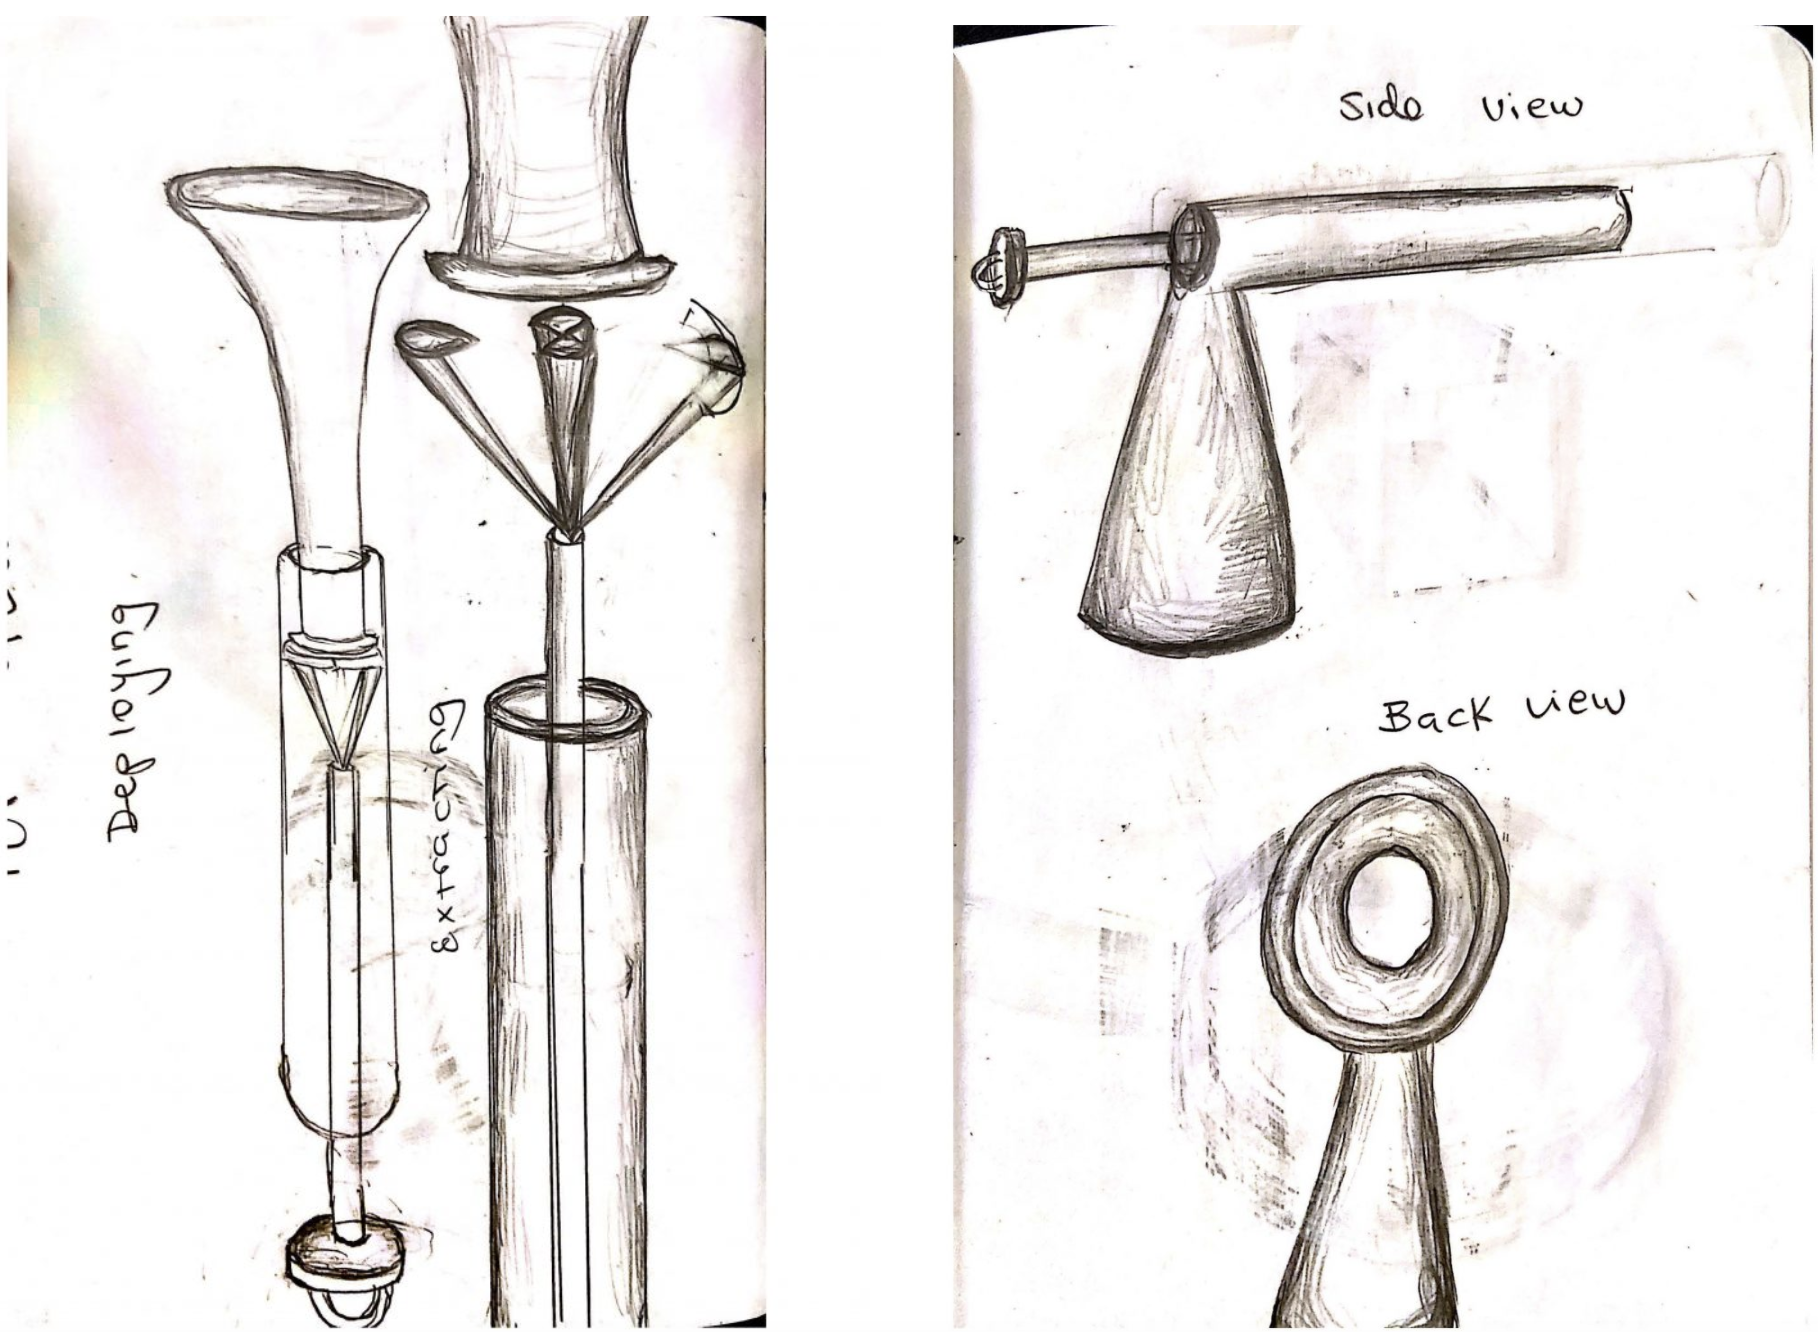 Deploying
Extracting
Side view
Back view